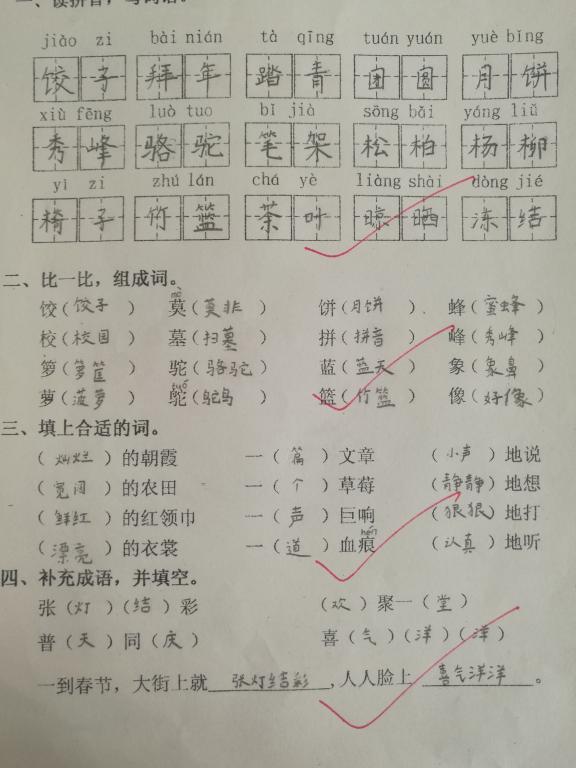 一、读拼音，写词语。
jiào zi bài nián tà qīng tuán yuán yuè bǐng
饺子 拜年 踏青 团圆 月饼
xiù fēng luò tuo bǐ jià sōng bǎi yáng liǔ
秀峰 骆驼 笔架 松柏 杨柳
yǐ zi zhú lán chá yè liàng shài dòng jié
椅子 竹篮 茶叶 晾晒 冻结
二、比一比，组成词。
饺（饺子） 莫（莫非） 饼（月饼） 蜂（蜜蜂）
校（校园） 墓（扫墓） 拼（拼音） 峰（秀峰）
箩（箩筐） 驼（骆驼） 蓝（蓝天） 象（象鼻）
萝（菠萝） 鸵（鸵鸟） 篮（竹篮） 像（好像）
三、填上合适的词。
（灿烂）的朝霞 一（篇）文章 （小声）地说
（宽阔）的农田 一（个）草莓 （静静）地想
（鲜红）的红领巾 一（声）巨响 （狠狠）地打
（漂亮）的衣裳 一（道）血痕 （认真）地听
四、补充成语，并填空。
张（灯）（结）彩 （欢）聚一（堂）
普（天）同（庆） 喜（气）（洋）（洋）
一到春节，大街上就张灯结彩，人人脸上喜气洋洋。